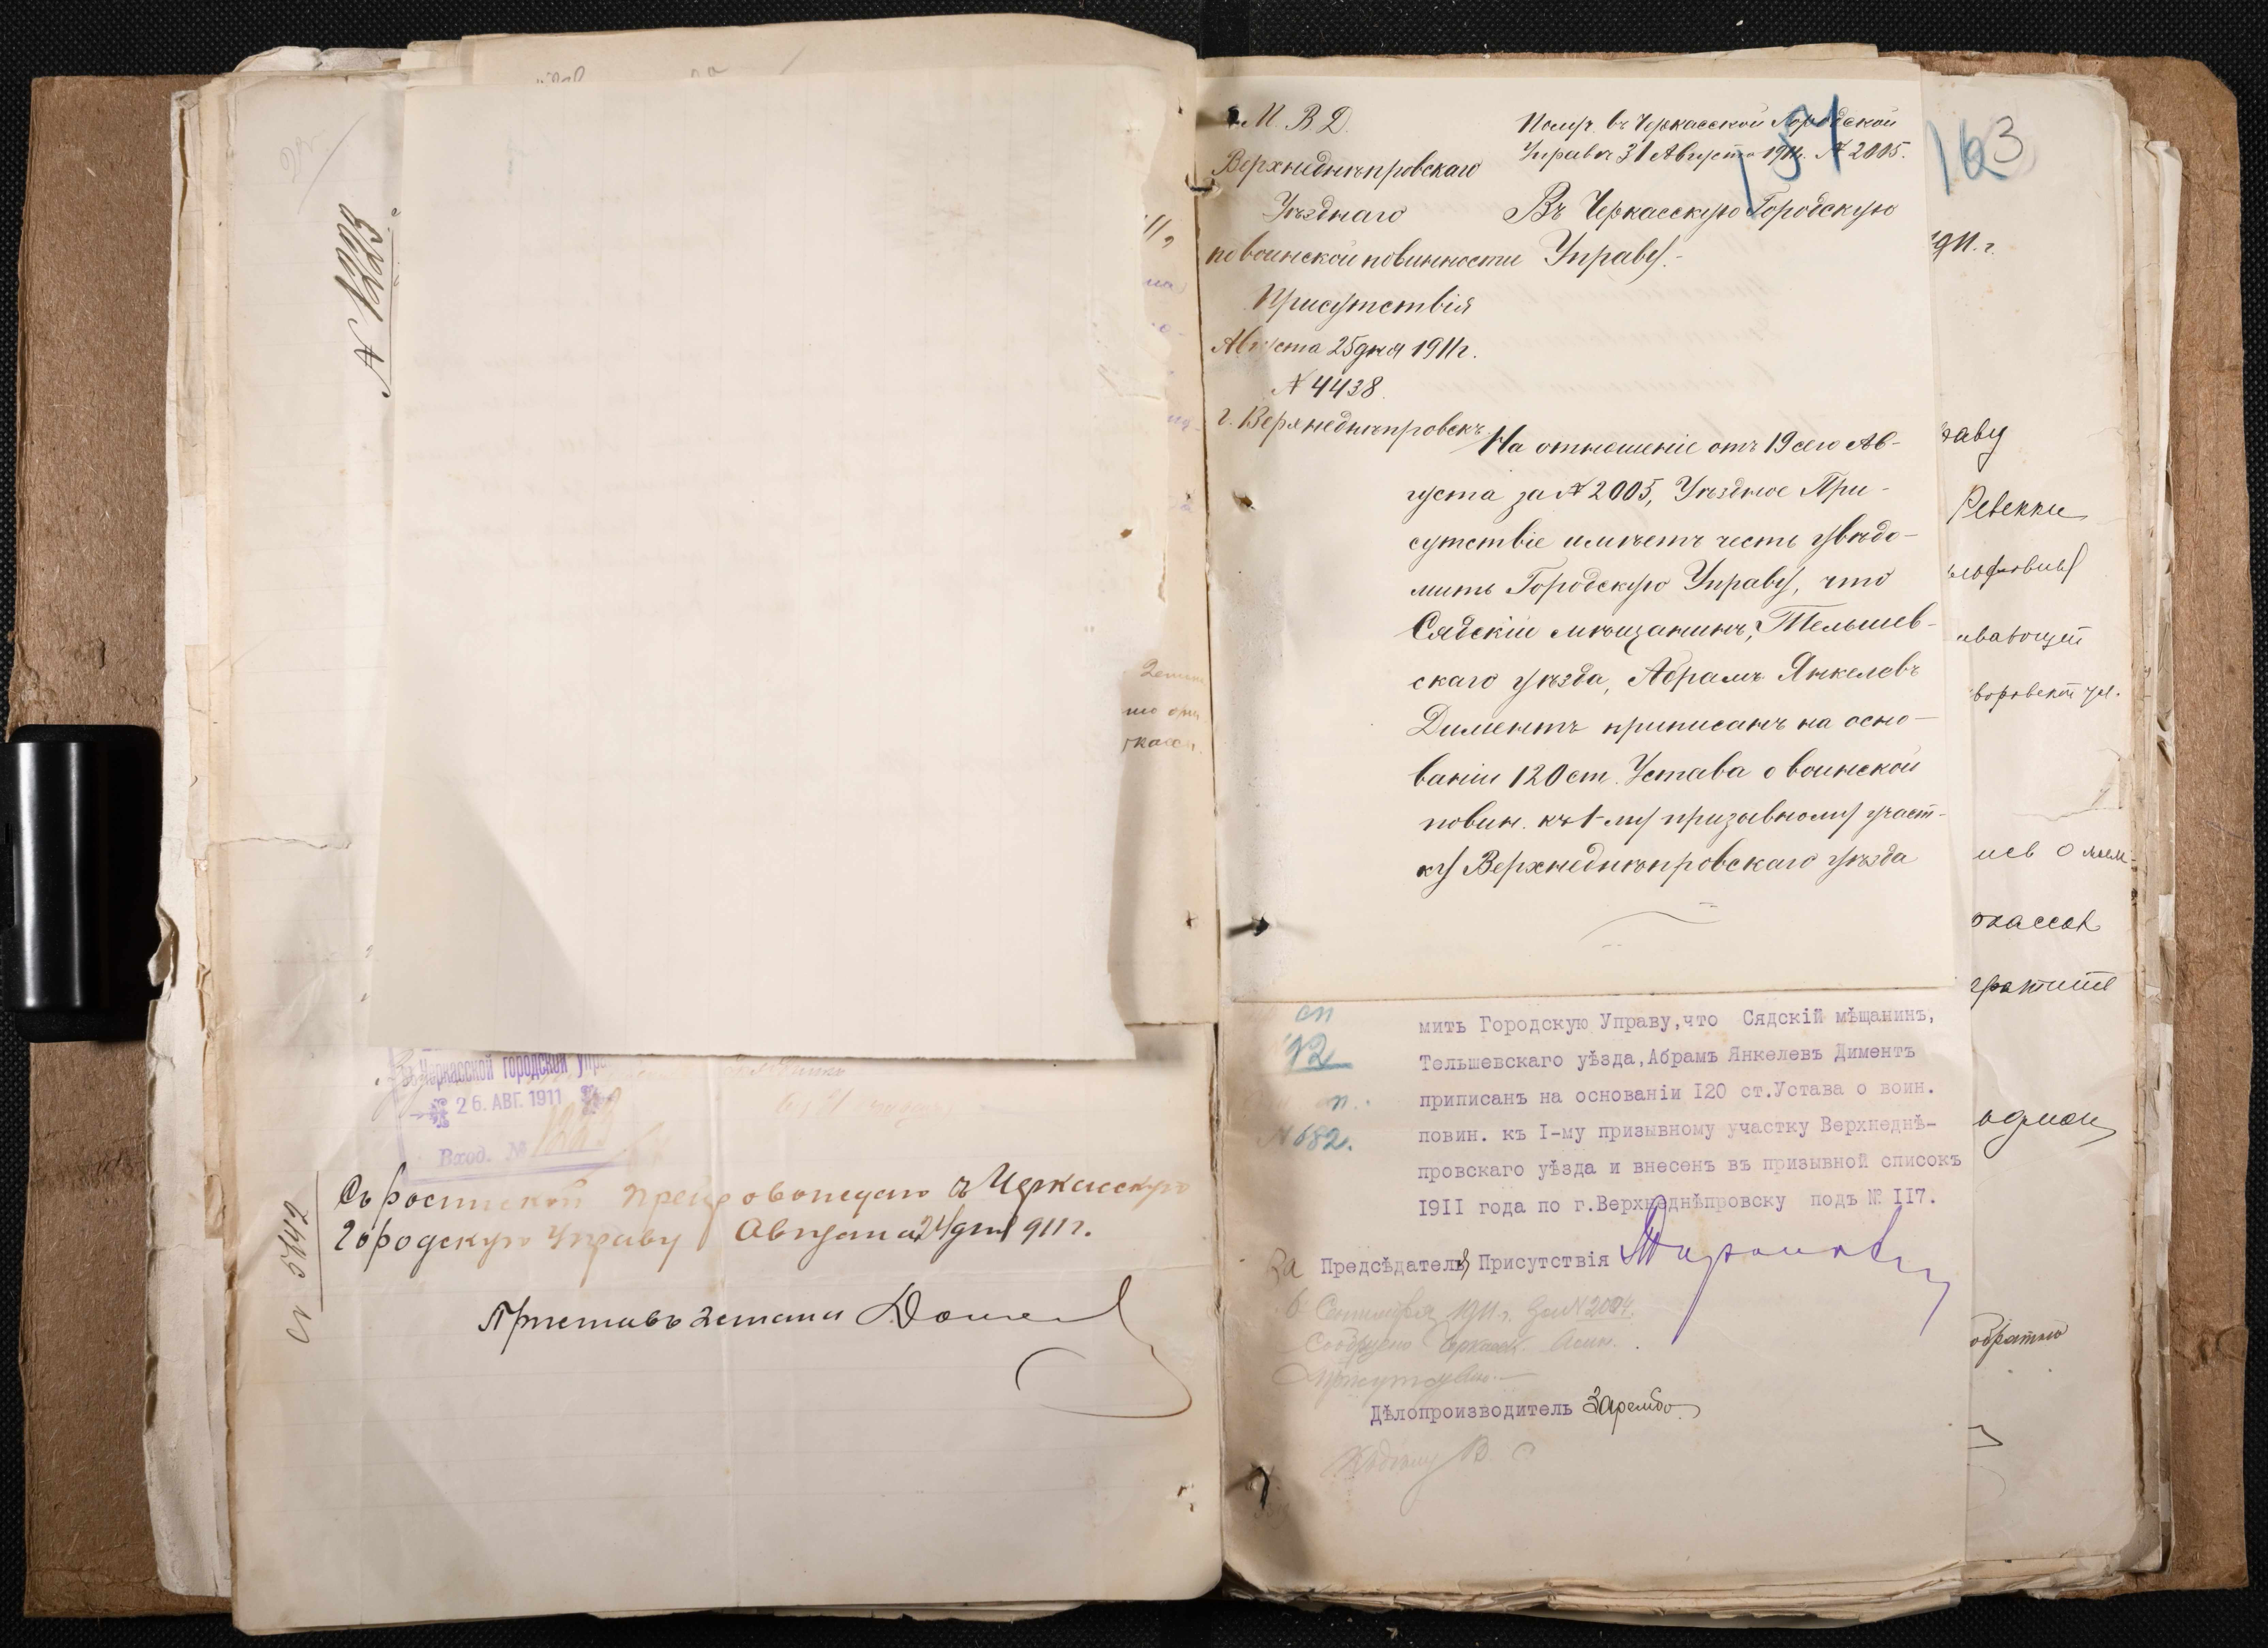 № 12293
Черкасской городской упр
26. АВГ. 1911
Вход. №
№ 5142
Съ роспиской препровождаю въ Черкасскую
Городскую Управу Августа 24 дня 1911 г.
Приставъ 2 стана
2 стана
М В Д.
Верхнеднѣпровскаго
Уѣзднаго
по воинской повинности
Присутствія
Августа 25 дня 1911 г.
№ 4438.
г. Верхнеднѣпровскъ.
Получ. въ Черкасской Городской
Управѣ 31 Августа 1911 г. № 2005.
163
Въ Черкасскую Городскую
Управу.-
На отношеніе отъ 19 сего Ав-
густа за № 2005, Уѣздное При-
сутствіе имѣетъ честь увѣдо-
мить Городскую Управу, что
Сядскій мѣщанинъ, Тельшев-
скаго уѣзда, Абрамъ Янкелевъ
Диментъ приписанъ на осно-
ваніи 120 ст. Устава о воинской
повин. къ 1-му призывному участ-
ку Верхнеднѣпровскаго уѣзда
сп
12
п.
№ 682.
мить Городскую Управу,что Сядскій мѣщанинъ,
Тельшевскаго уѣзда,Абрамъ Янкелевъ Диментъ
приписанъ на основаніи I20 ст.Устава о воин.
повин. къ I-му призывному участку Верхнеднѣ-
провскаго уѣзда и внесенъ въ призывной списокъ
I9II года по г.Верхнеднѣпровску подъ № II7.
За Предсѣдателя Присутствія
6 Сентября 1911 г. за № 2094.
Сообщено Черкасск.
Присутствію.
Дѣлопроизводитель Зарембо
1911. г.
раву
Ревекки
ркассы
обратно